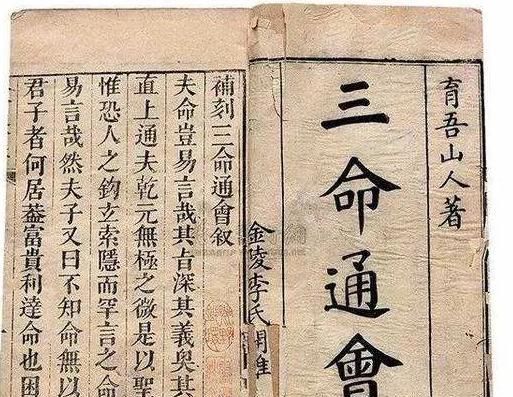 育吾山人著
三命通會
金陵李氏
補刻三命通會叙
夫命豈易言哉其旨深其義奥其
直上通夫乾元無極之微是以聖
惟恐人之鈎玄索隱而罕言之命
易言哉然夫子又曰不知命無以
君子者何居葢富貴利達命也困